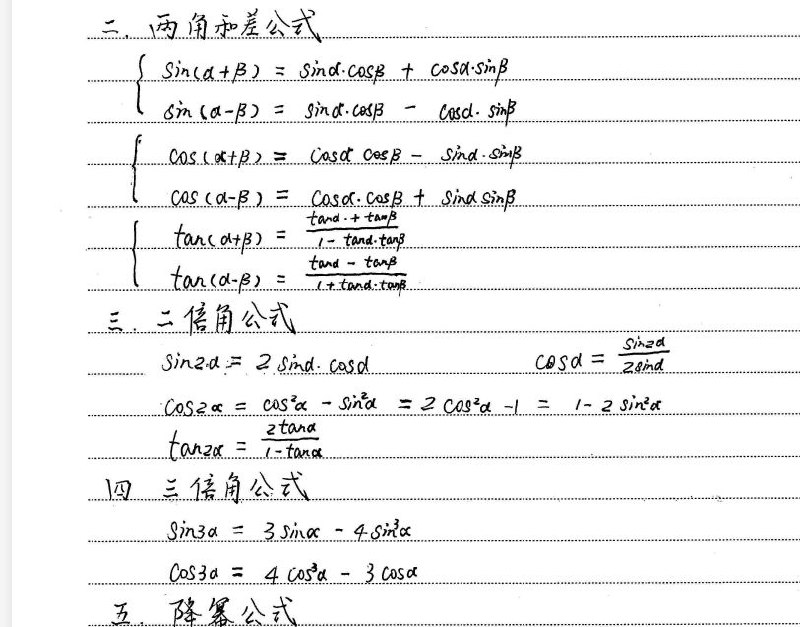 二. 两角和差公式
sin(α+β) = sinα·cosβ + cosα·sinβ
sin(α-β) = sinα·cosβ - cosα·sinβ
cos(α+β) = cosα cosβ - sinα·sinβ
cos(α-β) = cosα·cosβ + sinα sinβ
tan(α+β) = (tanα·+tanβ)/(1-tanα·tanβ)
tan(α-β) = (tanα-tanβ)/(1+tanα·tanβ)
三. 二倍角公式
sin2α = 2 sinα·cosα cosα = sin2α/2sinα
cos2α = cos²α - sin²α = 2cos²α -1 = 1-2sin²α
tan2α = 2tanα/(1-tanα)
四 三倍角公式
sin3α = 3sinα - 4sin³α
cos3α = 4cos³α - 3cosα
五. 降幂公式